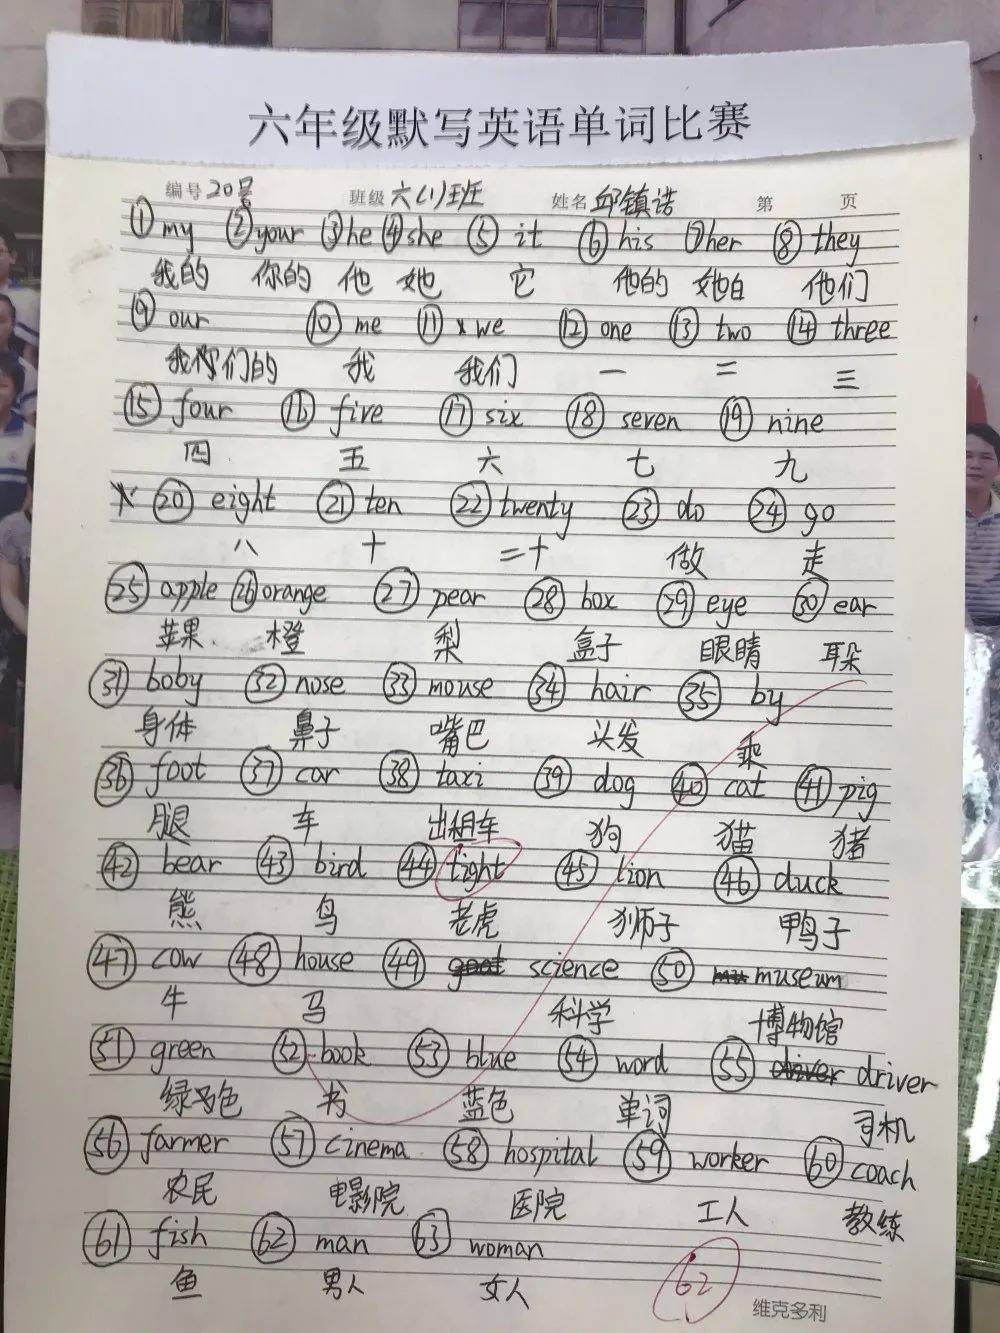 六年级默写英语单词比赛
编号 20号 班级 六(1)班 姓名 邱镇诺 第 页
① my ② your ③ he ④ she ⑤ it ⑥ his ⑦ her ⑧ they
我的 你的 他 她 它 他的 她白 他们
⑨ our ⑩ me ⑪ x we ⑫ one ⑬ two ⑭ three
我你们的 我 我们 一 二 三
⑮ four ⑯ five ⑰ six ⑱ seven ⑲ nine
四 五 六 七 九
⑳ eight ㉑ ten ㉒ twenty ㉓ do ㉔ go
八 十 二十 做 走
㉕ apple ㉖ orange ㉗ pear ㉘ box ㉙ eye ㉚ ear
苹果 橙 梨 盒子 眼睛 耳朵
㉛ boby ㉜ nose ㉝ mouse ㉞ hair ㉟ by
身体 鼻子 嘴巴 头发 乘
㊱ foot ㊲ car ㊳ taxi ㊴ dog ㊵ cat ㊶ pig
腿 车 出租车 狗 猫 猪
㊷ bear ㊸ bird ㊹ tight ㊺ lion ㊻ duck
熊 鸟 老虎 狮子 鸭子
㊼ cow ㊽ house ㊾ goat science ㊿ museum
牛 马 科学 博物馆
51 green 52 book 53 blue 54 word 55 driver driver
绿色 书 蓝色 单词 司机
56 farmer 57 cinema 58 hospital 59 worker 60 coach
农民 电影院 医院 工人 教练
61 fish 62 man 63 woman
鱼 男人 女人
62
维克多利